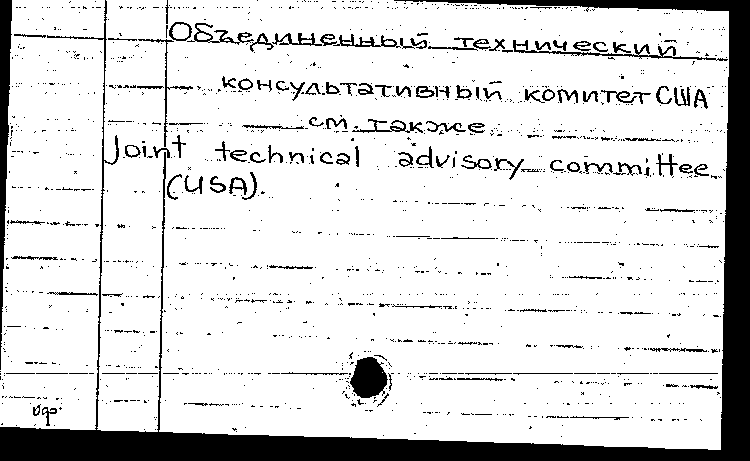 Объединенный технический
консультативный комитет США
см. также
Joint technical advisory committee
(USA).